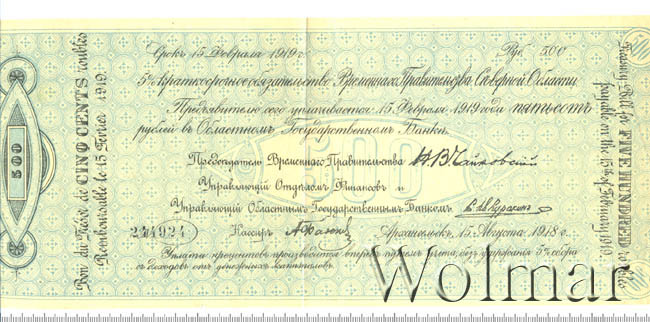 Срокъ 15 Февраля 1919 г. Руб. 500
5% краткосрочное обязательство Временнаго Правительства Сѣверной Области
Предъявителю сего уплачивается 15 Февраля 1919 года пятьсотъ
рублей въ Областномъ Государственномъ Банкѣ.
Предсѣдатель Временнаго Правительства Н.В. Чайковскій
Управляющій Отдѣломъ Финансовъ и
Управляющій Областнымъ Государственнымъ Банкомъ
244924 Кассиръ
Архангельскъ, 15 Августа 1918 г.
Уплата процентовъ производится впередъ путемъ учета, безъ удержанія 5% сбора
съ доходовъ отъ денежныхъ капиталовъ.
500
Bon du Trésor de CINQ CENTS roubles
Remboursable le 15 Février 1919.
Treasury Bill for FIVE HUNDRED roubles
payable on the 15th of February 1919.
500
Wolmar